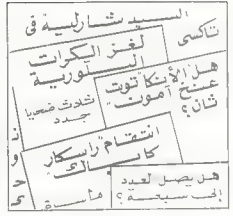 السيد شارلية في
تاكسي
لغز البكرات
البلورية
هل الأنكا توت
عنخ آمون
ثان؟
ثلاث ضحيا
جدد
انتقام راسكار
كاباك
هل يصل لعدد
إلى سبعة؟
مأساة